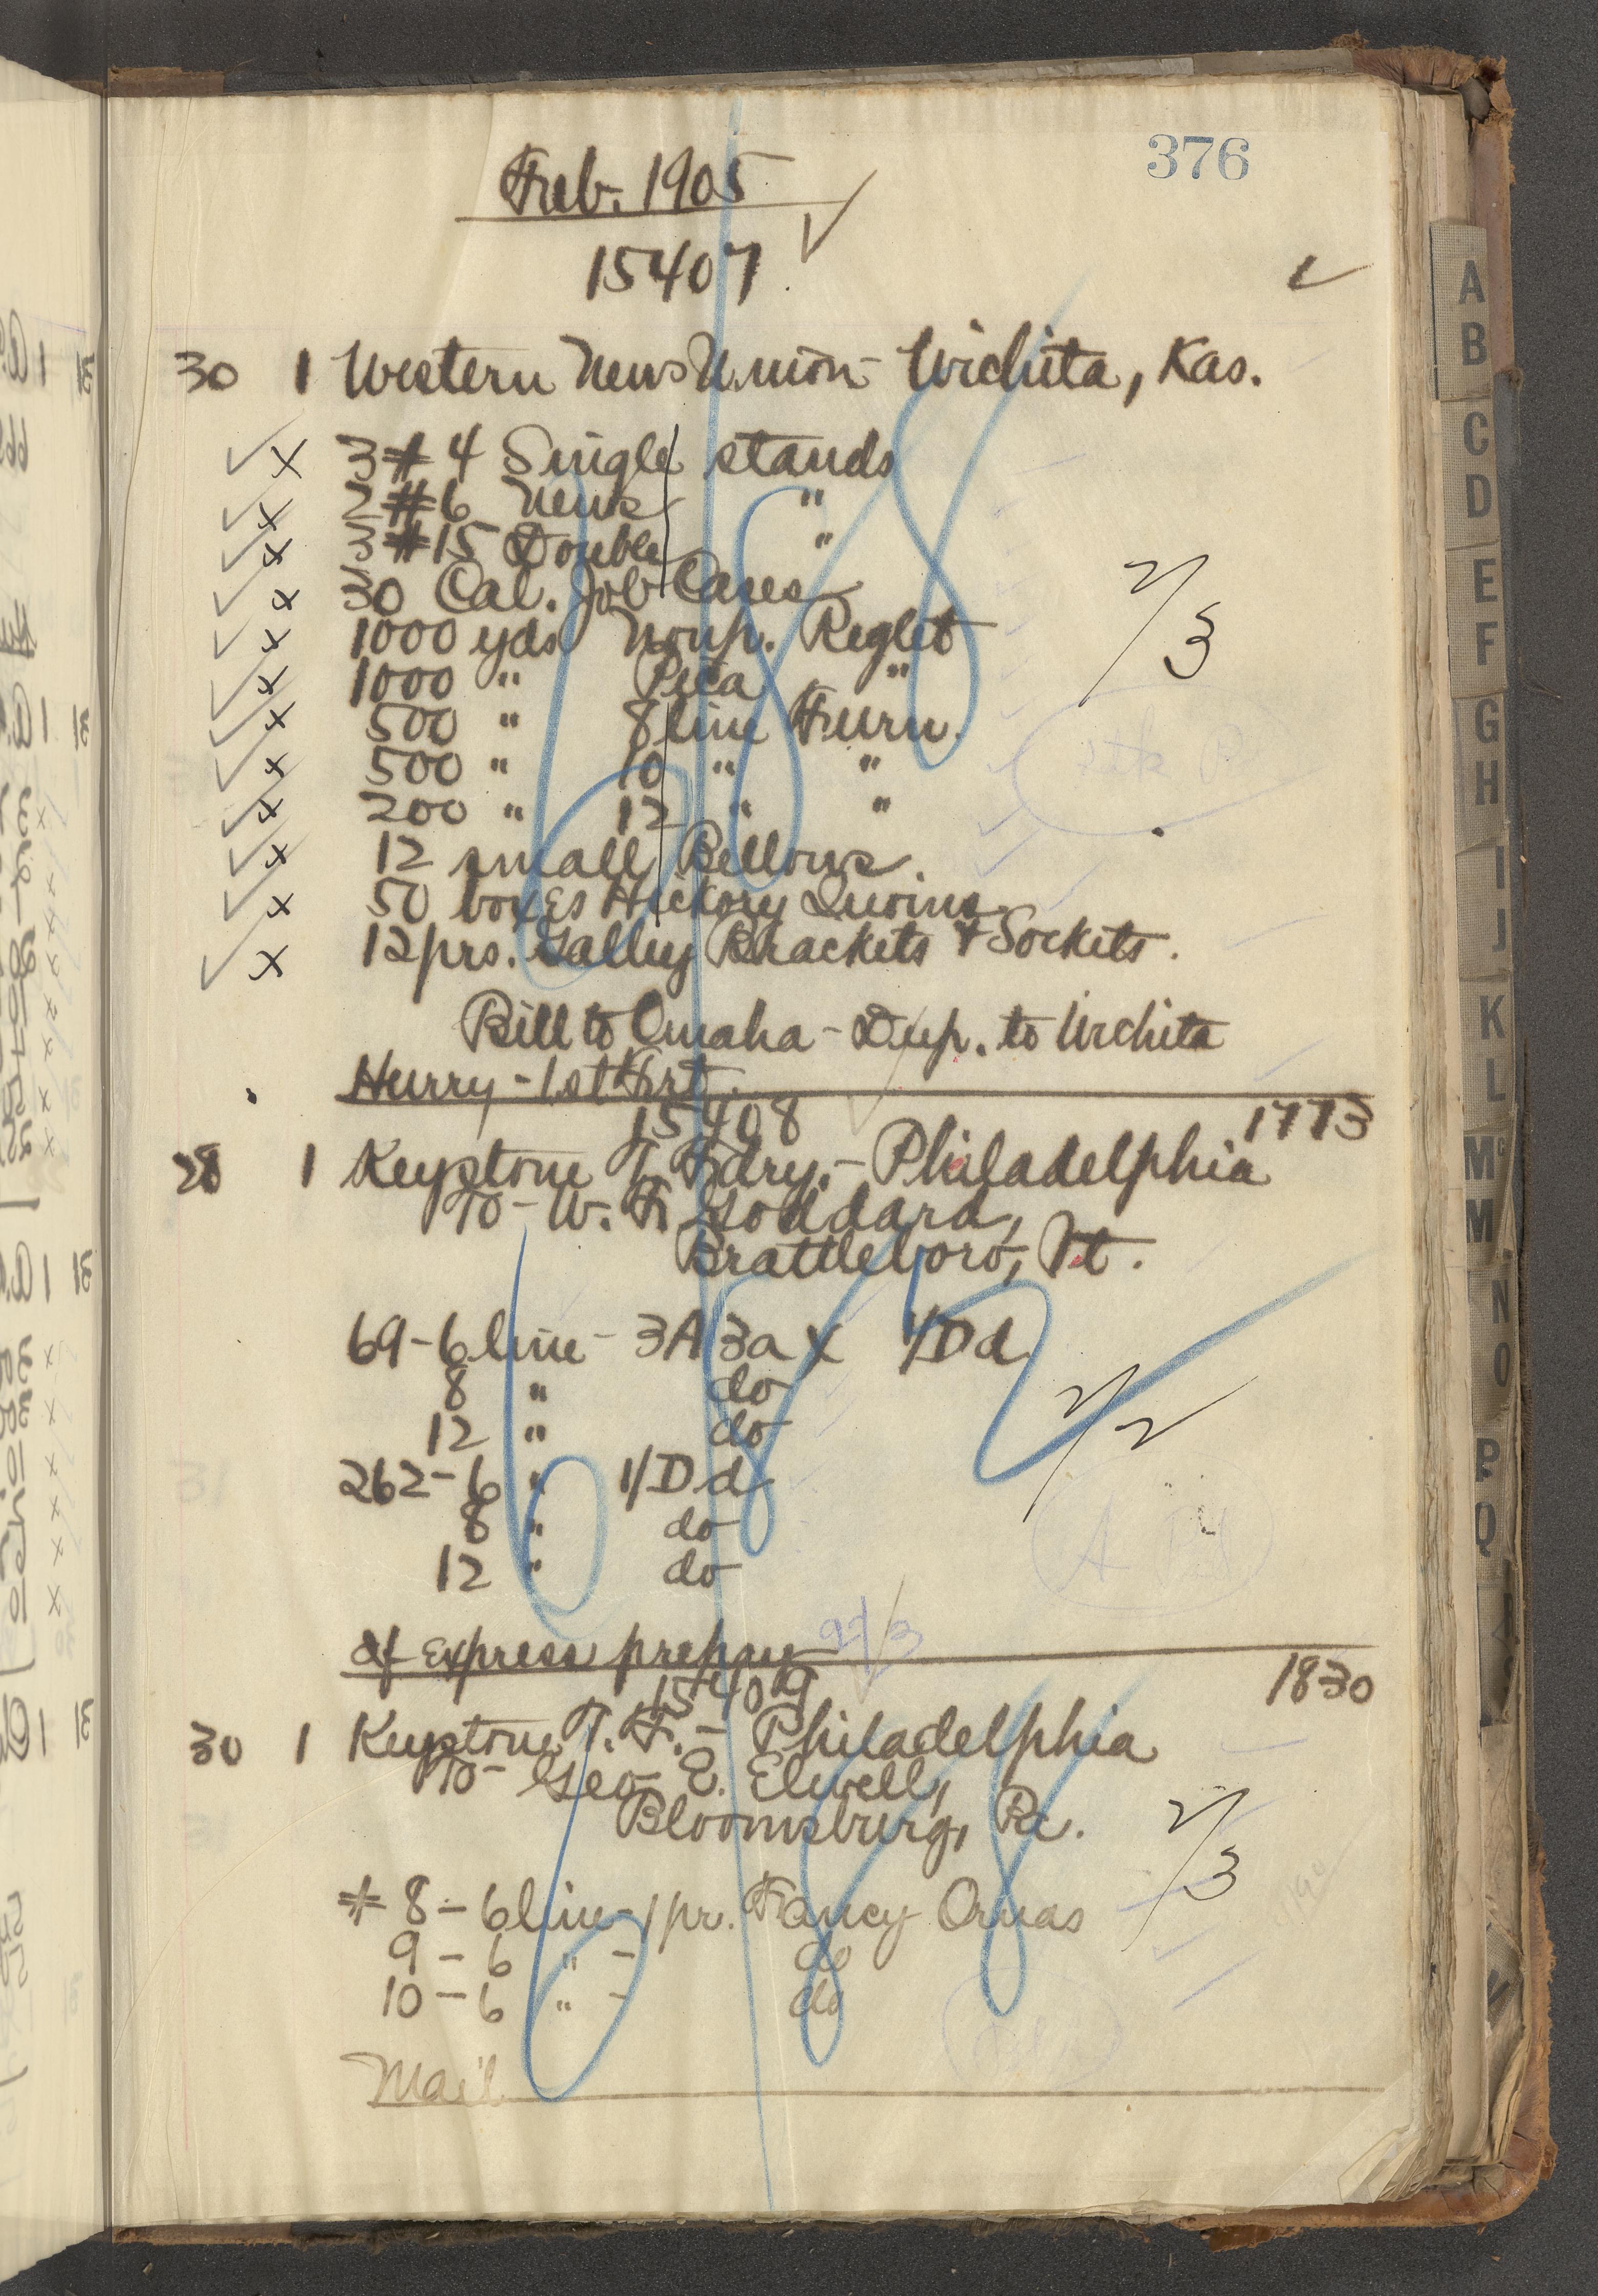 376
Feb. 1905
15407
30 1 Western News Union - Wichita, Kas.
3 # 4 Single stands
2 # 6 News "
3 # 15 Double "
30 Cal. Job Cases
1000 yds Nonp. Reglet
1000 " Pica "
500 " 8 line Furn.
500 " 10 " "
200 " 12 " "
12 small Bellows.
50 boxes Hickory Quoins
12 prs. Galley Brackets & Sockets.
2/3
Bill to Omaha - Dup. to Wichita
Hurry - 1st Frt.
15408 1773
28 1 Keystone T. Fdry. - Philadelphia
To - W. F. Goddard,
Brattleboro, Vt.
69 - 6 line - 3A 3a x 1/Dd
8 " do
12 " do
262 - 6 " 1/Dd
8 " do
12 " do
2/2
Af Express prepay
15409 1830
30 1 Keystone T. F. - Philadelphia
To - Geo. E. Elwell,
Bloomsburg, Pa.
2/3
# 8 - 6 line - 1 pr. Fancy Ornas
9 - 6 " - do
10 - 6 " - do
Mail
A
B
C
D
E
F
G
H
I
J
K
L
Mc
M
N
O
P
Q